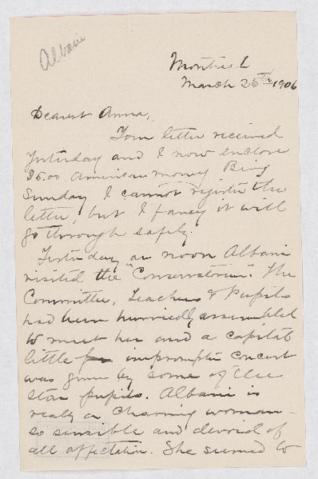 Albani
Montreal
March 25th 1906
Dearest Anna,
Your letter received
yesterday and I now enclose
$5.00 American money Being
Sunday I cannot register the
letter, but I fancy it will
go through safely.
Yesterday at noon Albani
visited the "Conservatorium. The
Committee, Teachers & Pupils
had been hurriedly assembled
to meet her and a capital
little impromptu concert
was given by some of the
star pupils. Albani is
really a charming woman -
so sensible and devoid of
all affectation. She seemed to